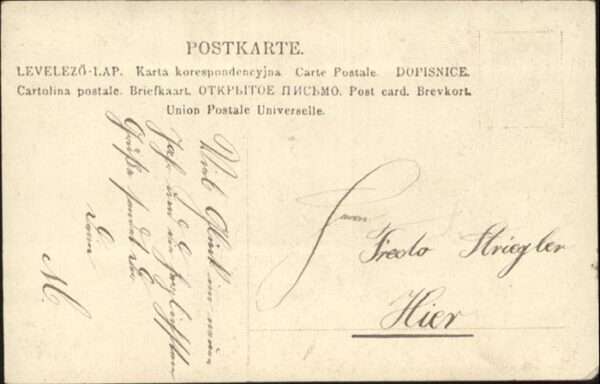 POSTKARTE.
LEVELEZŐ-LAP. Karta korespondencyjna Carte Postale. DOPISNICE.
Cartolina postale. Briefkaart. ОТКРЫТОЕ ПИСЬМО. Post card. Brevkort.
Union Postale Universelle.
Viel Glück im neuen
Jahr und die herzlichsten
Grüße sendet
M.
Herrn
Fredo Striegler
Hier